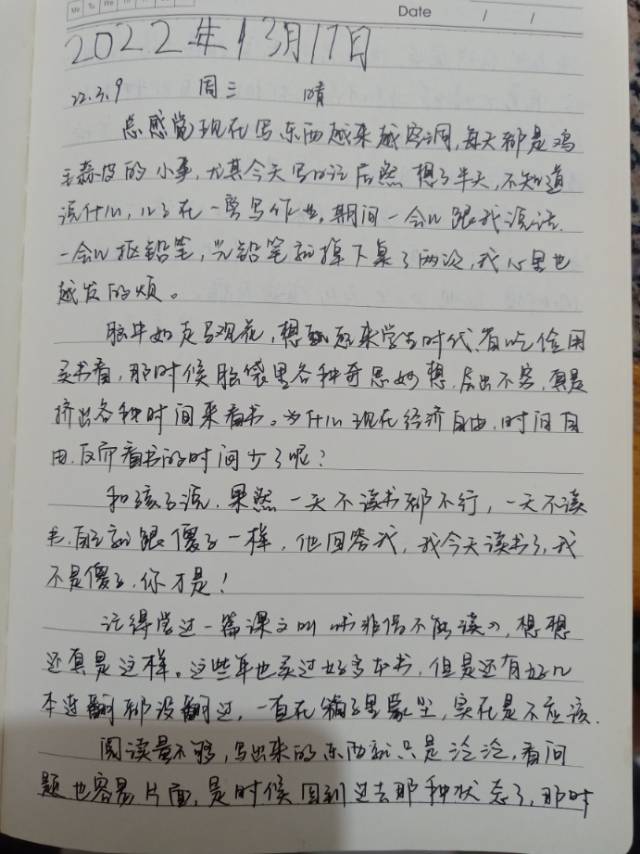 Mo Tu We Th Fr Sa Su
Date / /
2022年3月17日
22.3.9 周三 晴
总感觉现在写东西越来越空洞,每天都是鸡
毛蒜皮的小事,尤其今天写日记居然想了半天,不知道
说什么,儿子在一旁写作业,期间一会儿跟我说话,
一会儿抠铅笔,光铅笔就掉下桌了两次,我心里也
越发的烦。
脑中如走马观花,想到原来学生时代,省吃俭用
买书看,那时候脑袋里各种奇思妙想,层出不穷,真是
挤出各种时间来看书。为什么现在经济自由,时间自
由,反而看书的时间少了呢?
和孩子说,果然一天不读书都不行,一天不读
书,自己就跟傻子一样,他回答我,我今天读书了,我
不是傻子,你才是!
记得学过一篇课文叫《书非借不能读》,想想
还真是这样。这些年也买过好多本书,但是还有好几
本连翻都没翻过,一直在箱子里蒙尘,实在是不应该.
阅读量不够,写出来的东西就只是泛泛,看问
题也容易片面,是时候回到过去那种状态了,那时